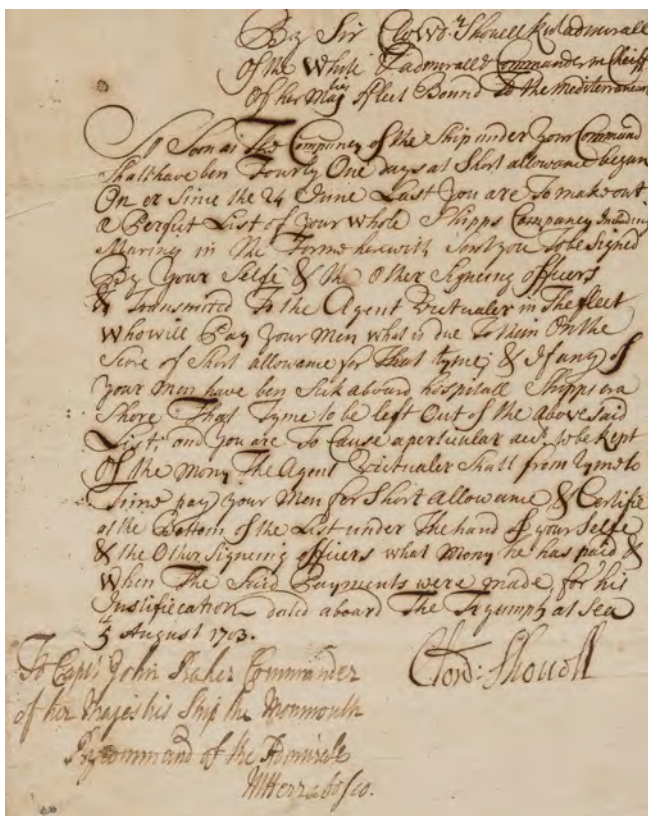 By Sir Clowd:ly Shovell Kt admirall
Of the White & admirall & Commander in Cheiff
Of her Maties ffleet Bound To the mediterranean
So Soon as The Company of the Ship under Your Command
Shall have ben Fourty One days at Short allowance began
On er Since the 24 June Last You are To make out
a Perfect List of Your whole Shipps Company Including
Marins in the Forme herewith Sent you To be Signed
By Your Selfe & the Other Signing officers
& Transmited To the Agent Victualer in The fleet
Who will Pay Your Men what is due To them On the
Score of Short allowance for That tyme; & If any of
Your Men have ben Sick aboard hospitall Shipps or a
Shore That Tyme to be left Out of the above said
List, and you are To Cause a perticular acct. to be kept
Of the Mony The Agent Victualer Shall from tyme to
Time pay Your Men for Short Allowance & Certifie
at the Bottom of the List under The hand of your Selfe
& the Other Signing officers what Mony he has paid &
When The Said Payments were made, for his
Justification dated aboard The Tryumph at Sea
4/5 August 1703.
Clowd: Shovell
To Capt: John Baker Commander
of her Majesties Ship the Monmouth
By command of the Admirale